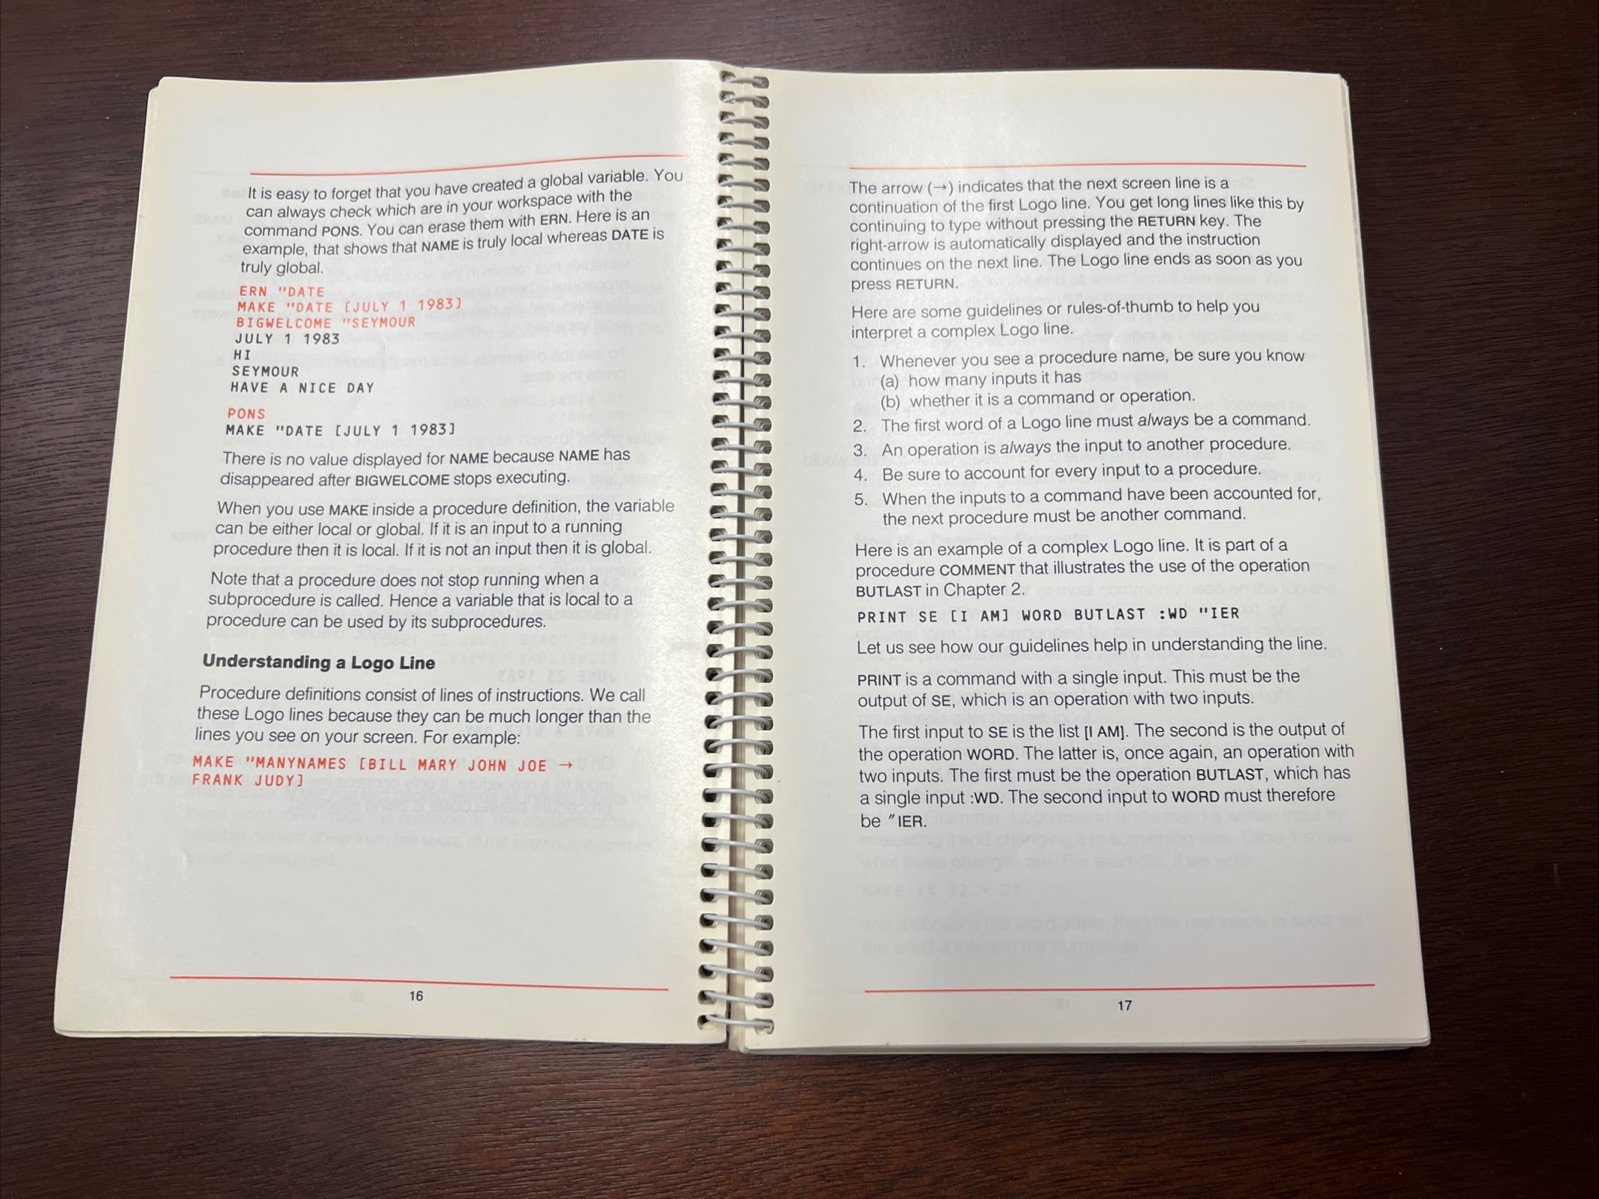 It is easy to forget that you have created a global variable. You
can always check which are in your workspace with the
command PONS. You can erase them with ERN. Here is an
example, that shows that NAME is truly local whereas DATE is
truly global.
ERN "DATE
MAKE "DATE [JULY 1 1983]
BIGWELCOME "SEYMOUR
JULY 1 1983
HI
SEYMOUR
HAVE A NICE DAY
PONS
MAKE "DATE [JULY 1 1983]
There is no value displayed for NAME because NAME has
disappeared after BIGWELCOME stops executing.
When you use MAKE inside a procedure definition, the variable
can be either local or global. If it is an input to a running
procedure then it is local. If it is not an input then it is global.
Note that a procedure does not stop running when a
subprocedure is called. Hence a variable that is local to a
procedure can be used by its subprocedures.
Understanding a Logo Line
Procedure definitions consist of lines of instructions. We call
these Logo lines because they can be much longer than the
lines you see on your screen. For example:
MAKE "MANYNAMES [BILL MARY JOHN JOE →
FRANK JUDY]
16
The arrow (→) indicates that the next screen line is a
continuation of the first Logo line. You get long lines like this by
continuing to type without pressing the RETURN key. The
right-arrow is automatically displayed and the instruction
continues on the next line. The Logo line ends as soon as you
press RETURN.
Here are some guidelines or rules-of-thumb to help you
interpret a complex Logo line.
1. Whenever you see a procedure name, be sure you know
(a) how many inputs it has
(b) whether it is a command or operation.
2. The first word of a Logo line must always be a command.
3. An operation is always the input to another procedure.
4. Be sure to account for every input to a procedure.
5. When the inputs to a command have been accounted for,
the next procedure must be another command.
Here is an example of a complex Logo line. It is part of a
procedure COMMENT that illustrates the use of the operation
BUTLAST in Chapter 2.
PRINT SE [I AM] WORD BUTLAST :WD "IER
Let us see how our guidelines help in understanding the line.
PRINT is a command with a single input. This must be the
output of SE, which is an operation with two inputs.
The first input to SE is the list [I AM]. The second is the output of
the operation WORD. The latter is, once again, an operation with
two inputs. The first must be the operation BUTLAST, which has
a single input :WD. The second input to WORD must therefore
be "IER.
17